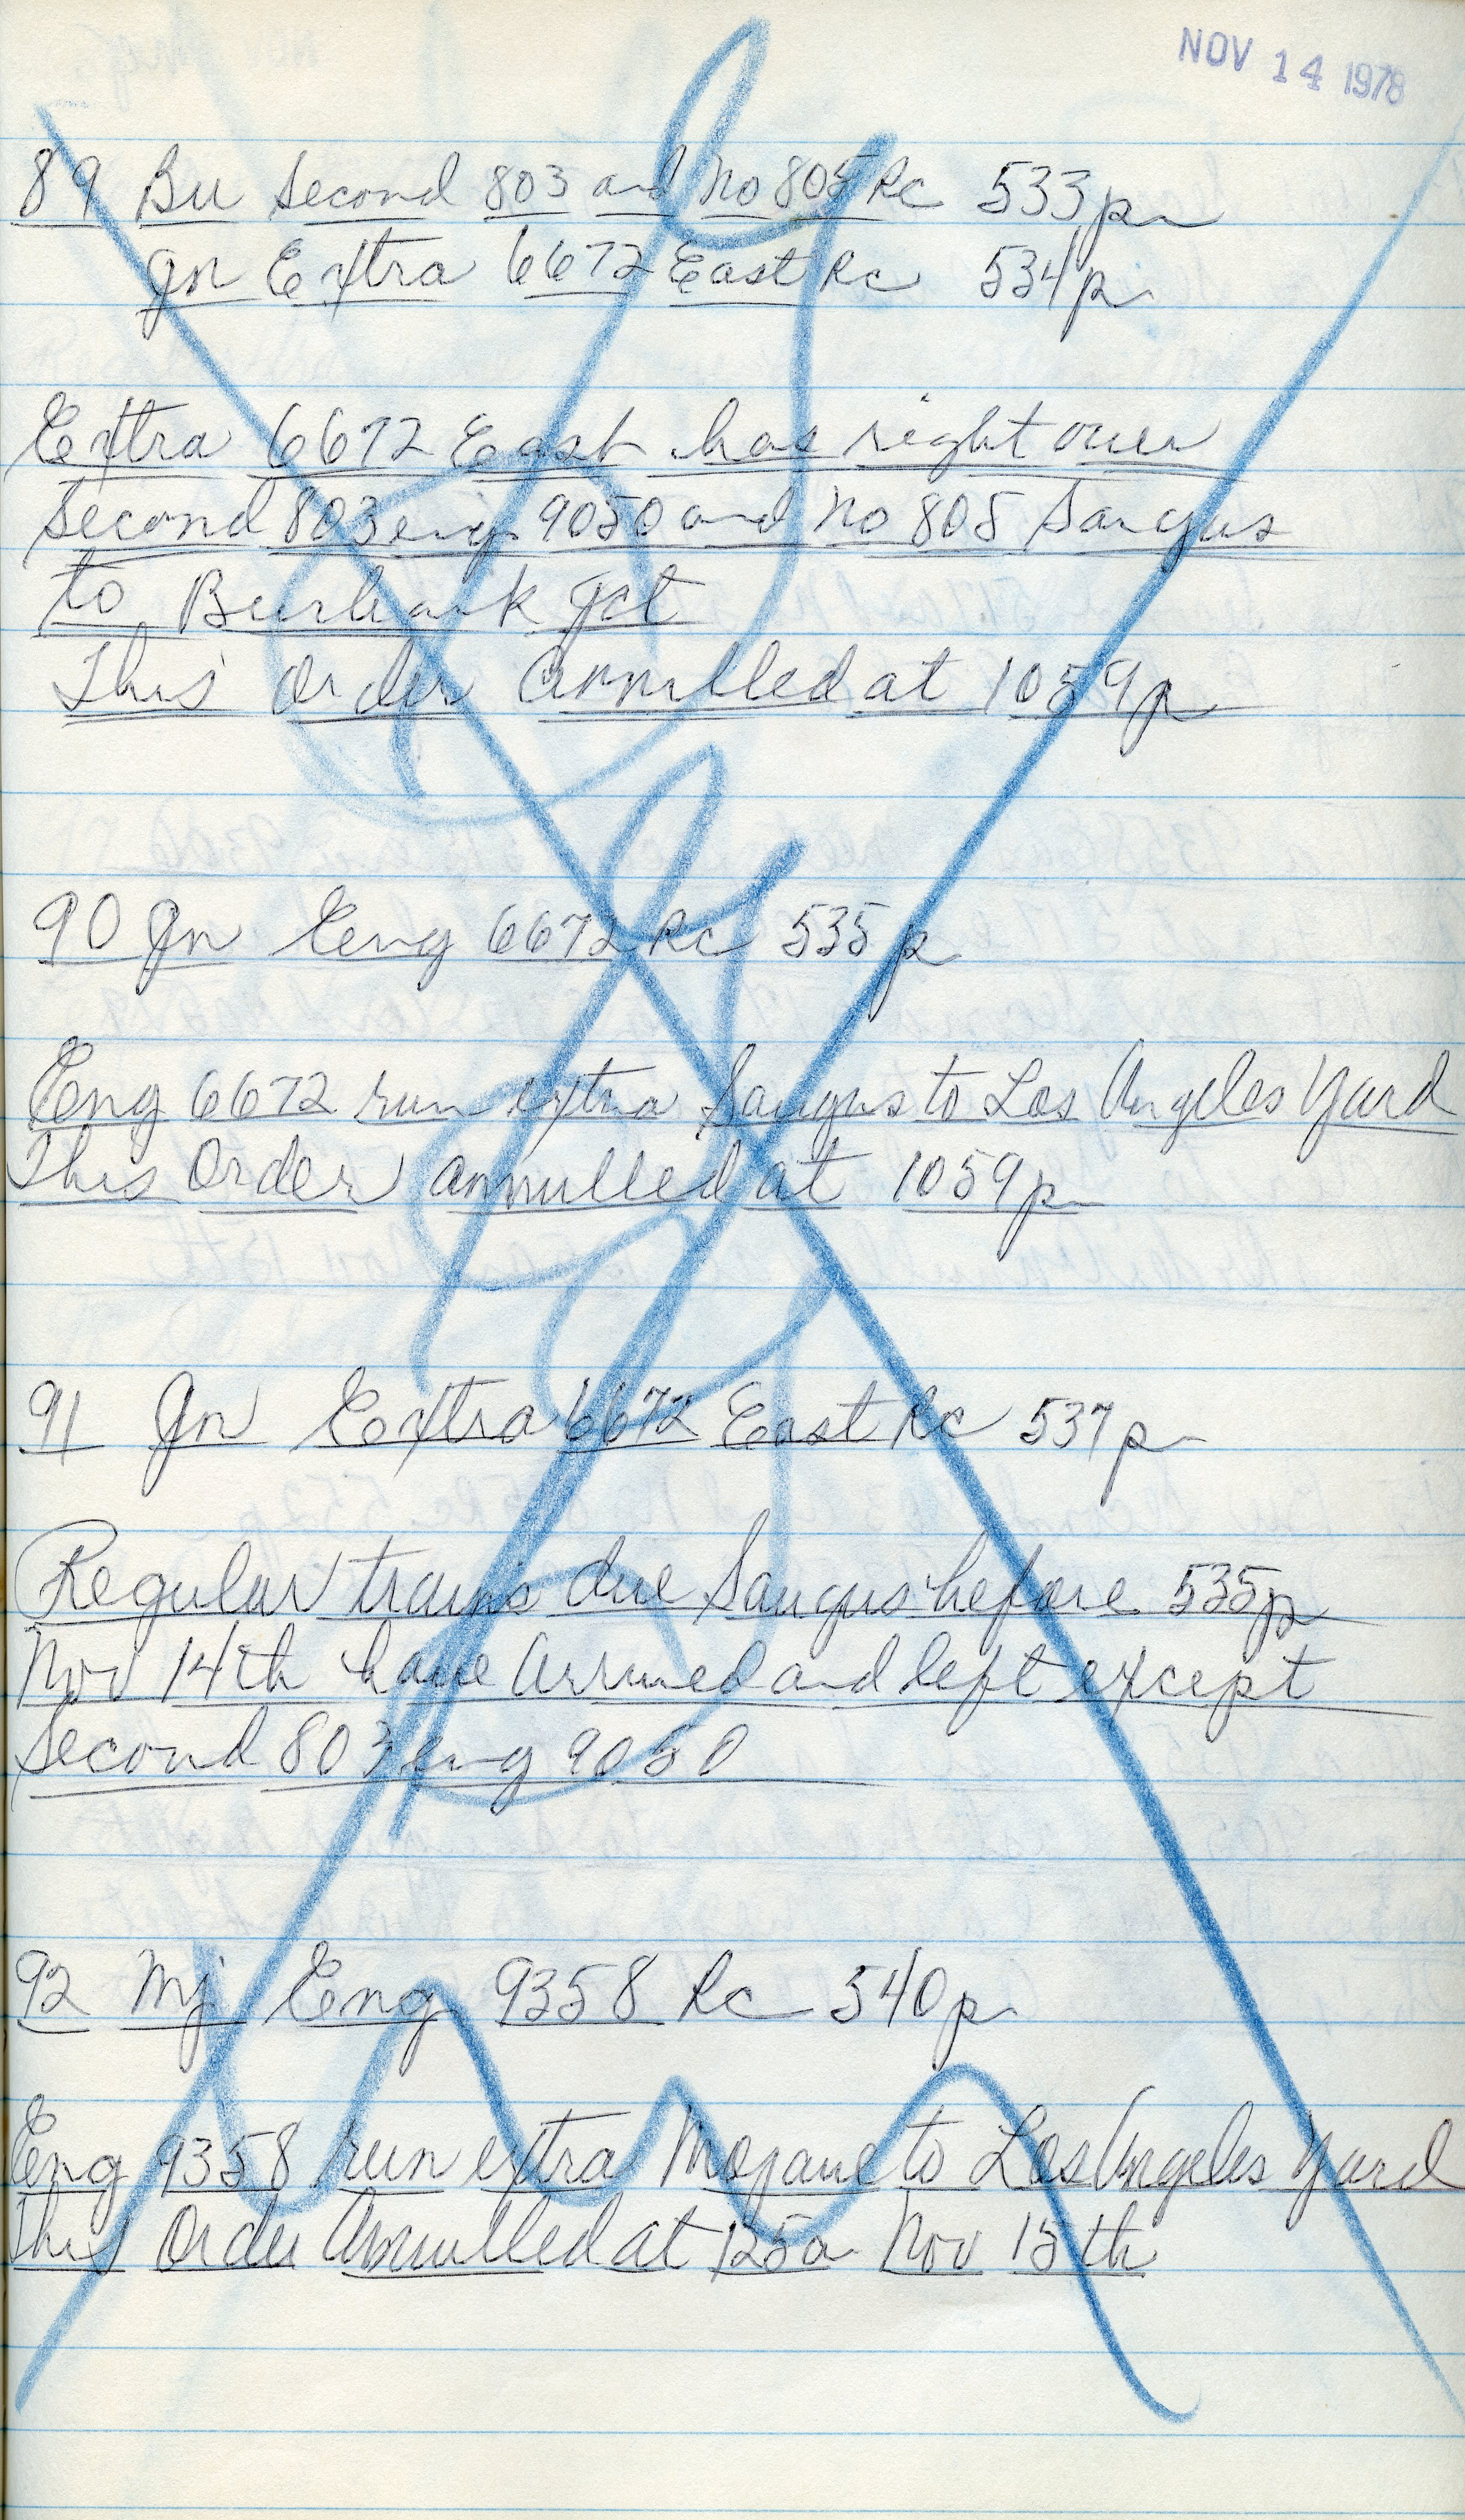 NOV 14 1978
89 Bu Second 803 and No 805 Rc 533p
Gn Extra 6672 East Rc 534p
Extra 6672 East has right over
Second 803 eng 9050 and No 805 Saugus
to Burbank Jct
This Order annulled at 1059p
90 Gn Eng 6672 Rc 535p
Eng 6672 run extra Saugus to Los Angeles Yard
This Order annulled at 1059p
91 Gn Extra 6672 East Rc 537p
Regular trains due Saugus before 535p
Nov 14th have Arrived and left except
Second 803 eng 9050
92 Mj Eng 9358 Rc 540p
Eng 9358 run extra Mojave to Los Angeles Yard
This Order Annulled at 125a Nov 15th